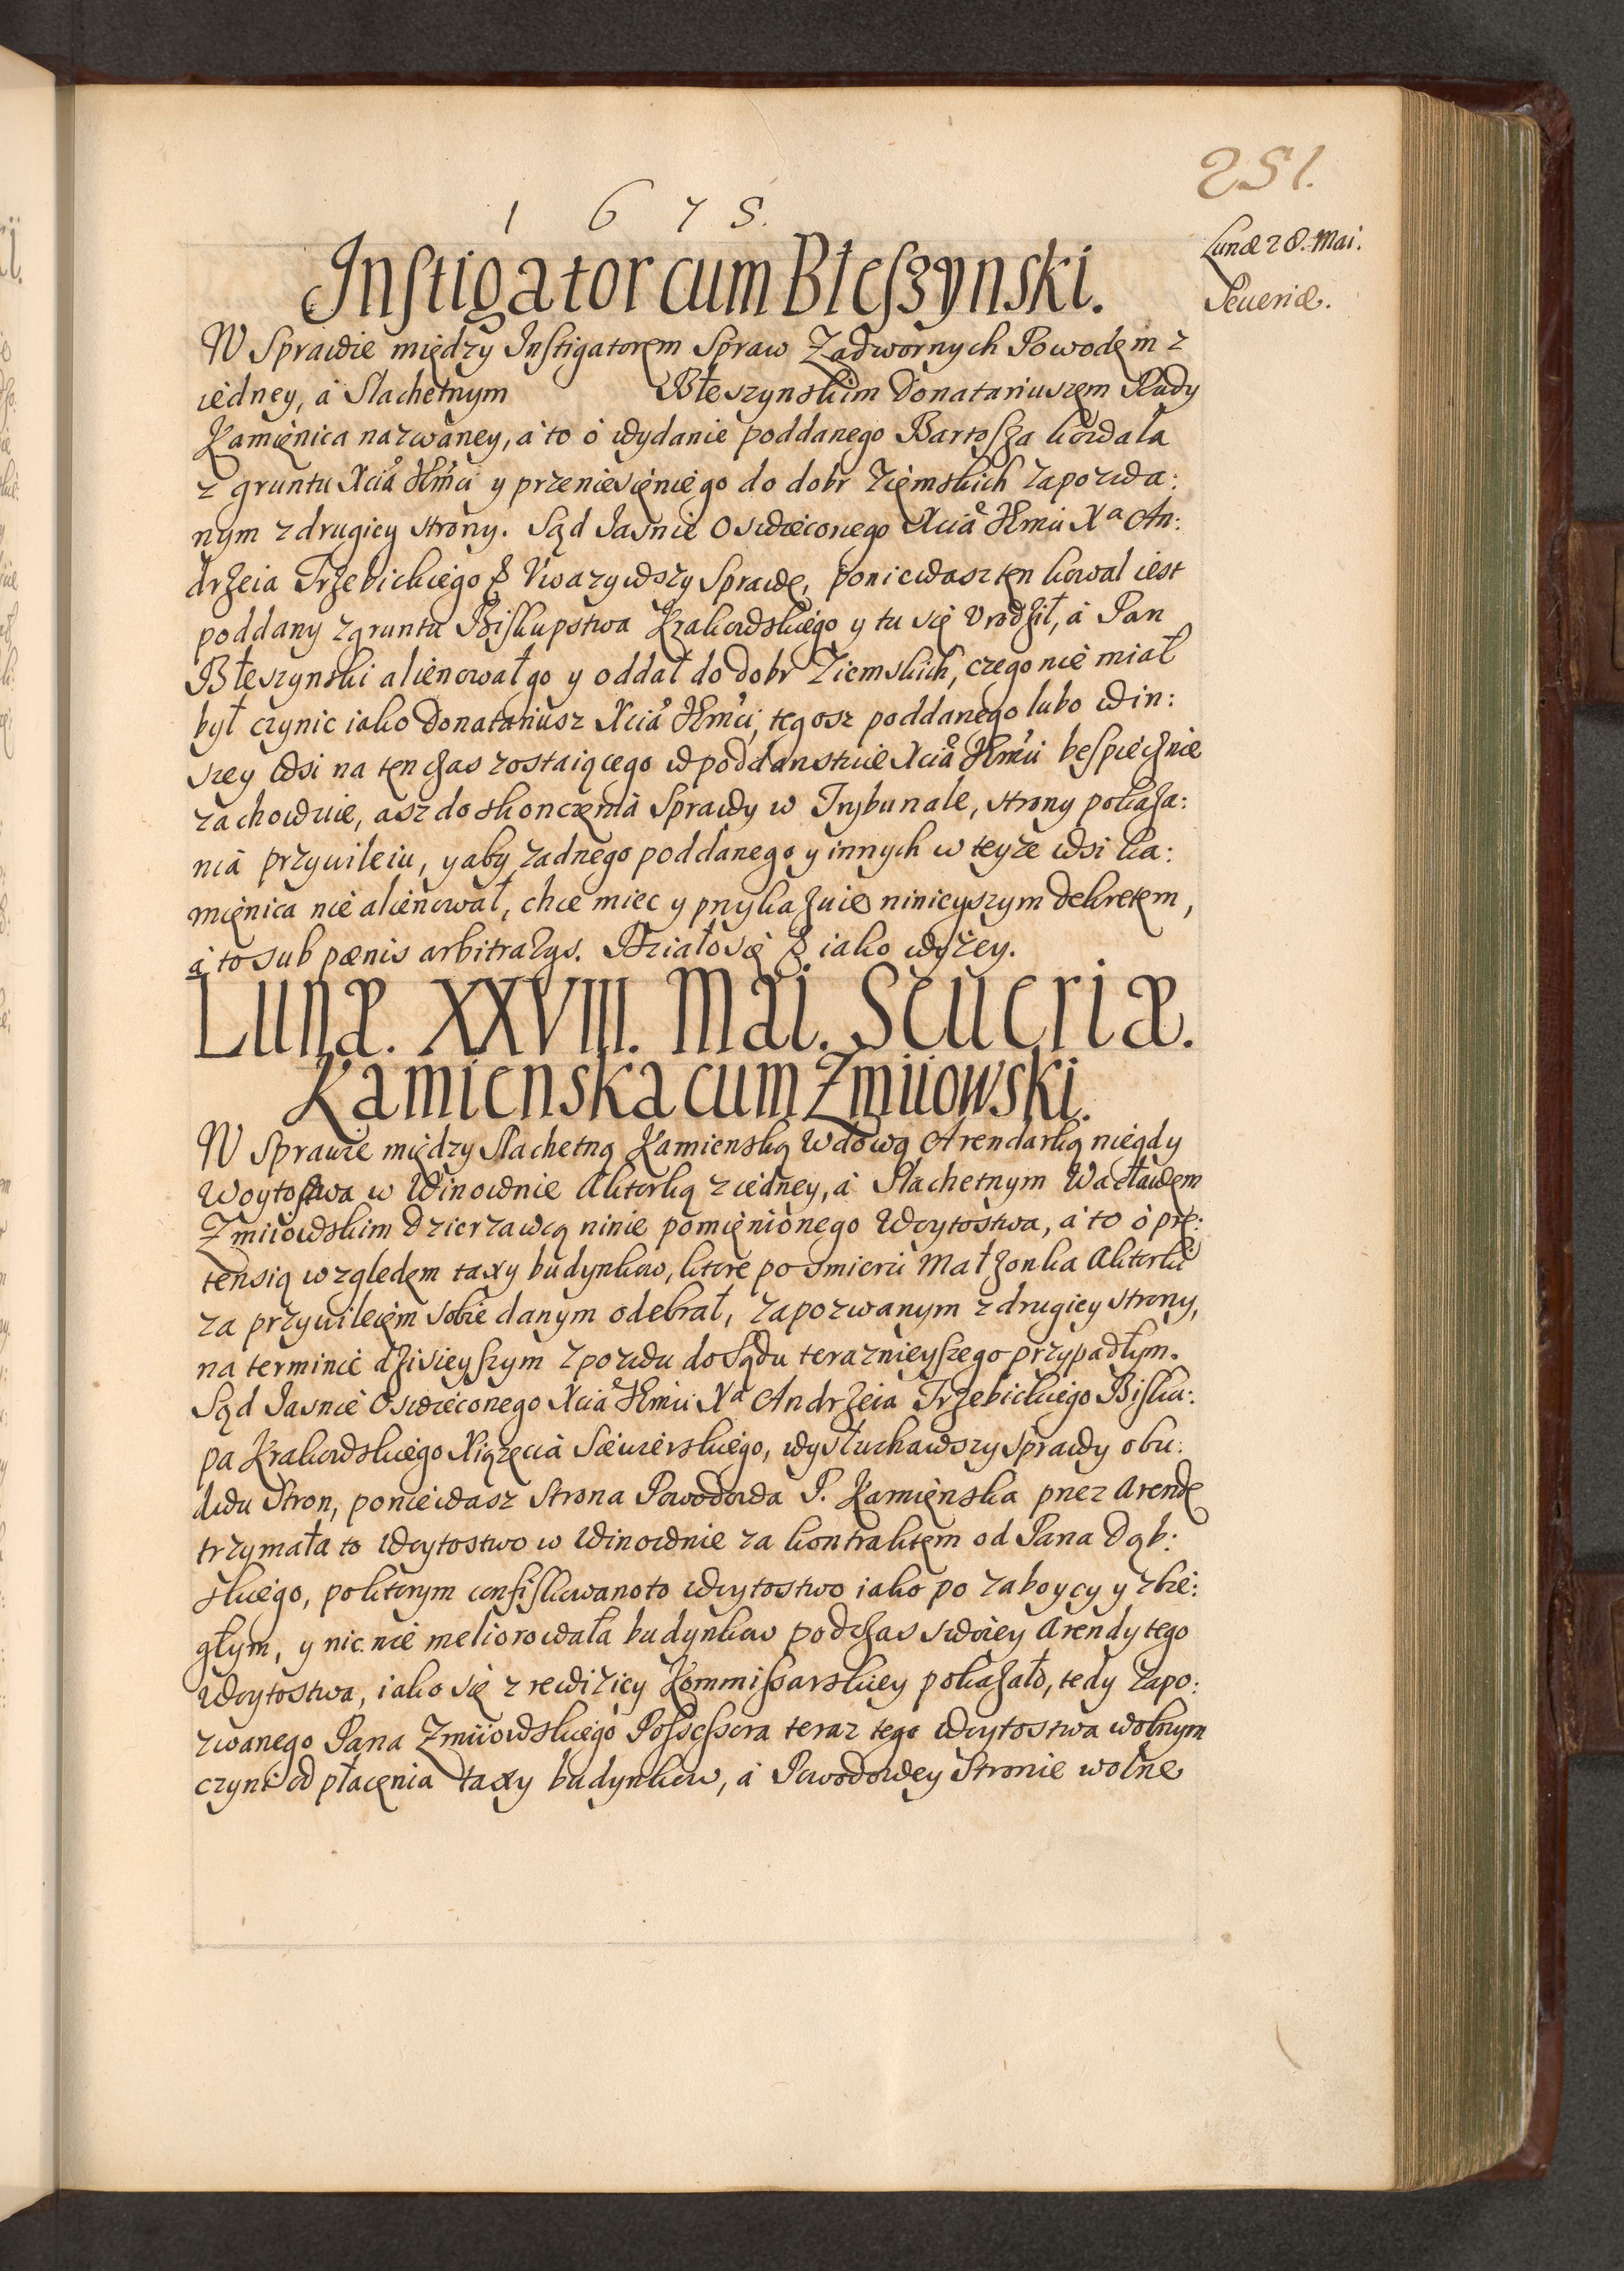 251.
1 6 7 5.
Lunæ 28. Mai.
Seueriæ.
Instigator cum Błeszynski.
W Sprawie między Instigatorem Spraw Zadwornych Powodem z
iedney, á Slachetnym Błeszynskim Donatariuszem Rudy
Kamięnica nazwáney, á to ó wydanie poddanego Bartosza kowala
z gruntu Xcia Jmci y przeniesięnie go do dobr Ziemskich zapozwa:
nym z drugiey strony. Sąd Jasnie Oswieconego Xcia Jmci Xa An:
drzeia Trzebickiego & Vwazywszy Sprawę, poniewasz ten kowal iest
poddany z gruntu Biskupstwa Krakowskiego y tu się vrodził, á Pan
Błeszynski alienował go y oddał do dobr Ziemskich, czego nie miał
był czynic iako Donatariusz Xcia Jmci, tegosz poddanego lubo w in:
szey wsi na ten czas zostaiącego w poddanstwie Xcia Jmci bespiecznie
zachowuie, asz do skonczenia Sprawy w Trybunale, strony pokaza:
nia przywileiu, y aby zadnego poddanego y innych w teyze wsi Ka:
mięnica nie alienował, chce miec y przykazuie ninieyszym dekretem,
á to sub pœnis arbitralys. Działo się & iako wyżey.
Lunæ. XXVIII. Mai. Seueriæ.
Kamienska cum Zmiiowski.
W Sprawie między Slachetną Kamienską Wdową Arendarką niegdy
Woytostwa w Winownie Aktorką z iedney, á Slachetnym Wacławem
Zmiiowskim Dzierzawcą ninie pomięnionego Woytostwa, á to ó prę:
tensią względem taxy budynkow, ktore po smierci Małzonka Aktorki
za przywileiem sobie danym odebrał, zapozwanym z drugiey strony,
na terminie dzisieyszym z pozwu do Sądu teraznieyszego przypadłym.
Sąd Jasnie Oswieconego Xcia Jmci Xa Andrzeia Trzebickiego Bisku:
pa Krakowskiego Xiązęcia Siewierskiego, wysłuchawszy sprawy obu:
dwu Stron, poniewasz Strona Powodowa P. Kamięnska przez Arendę
trzymała to Woytostwo w Winownie za kontraktem od Pana Dąb:
skiego, po ktorym confiskowano to Woytostwo iako po zaboycy y zbie:
głym, y nic nie meliorowała budynkow podczas swoiey Arendy tego
Woytostwa, iako się z rewiziey Kommissarskiey pokazało, tedy zapo:
zwanego Pana Zmiiowskiego Possessora teraz tego Woytostwa wolnym
czyni od płacenia taxy budynkow, á Powodowey Stronie wolne